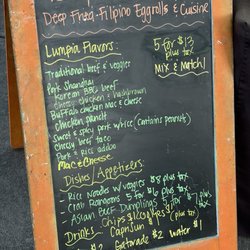 Deep Fried Filipino Eggrolls & Cuisine
Lumpia Flavors: 5 for $13
plus tax
Traditional beef & veggies Mix & Match!
Pork Shanghai
Korean BBQ beef
Cheesy chicken & hashbrown
Buffalo chicken mac & cheese
Chicken
Sweet & spicy pork w/rice (contains peanuts)
Cheesy beef taco
Pork & rice adobo
Mac & Cheese
Dishes/Appetizers:
- Rice Noodles w/ veggies $5 plus tax
- Crab Rangoons 5 for $6 plus tax
- Asian Beef Dumplings 5 for $7 plus tax
Drinks Chips
Caprisun $1 (plus tax)
Gatorade $2 water $1